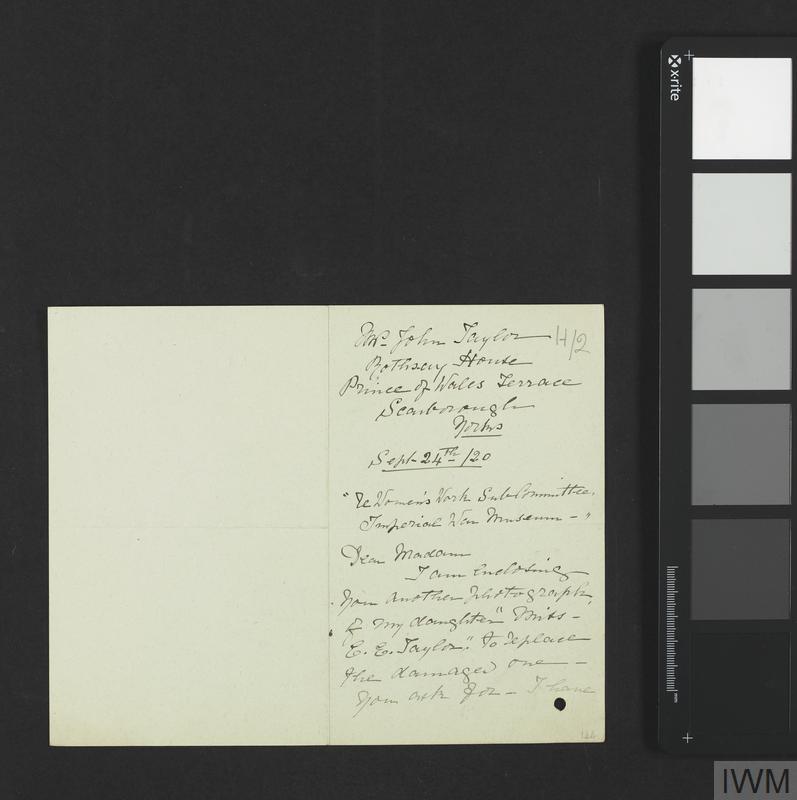 Mrs. John Taylor H/2
Rothsay House
Prince of Wales Terrace
Scarborough
Yorks
Sept 24th /20
"Re Women's Work SubCommittee.
Imperial War Museum - "
Dear Madam
I am enclosing
you another photograph
of my daughter "Miss -
E. E. Taylor." to replace
the damaged one -
you ask for - I have
x-rite
mm
IWM